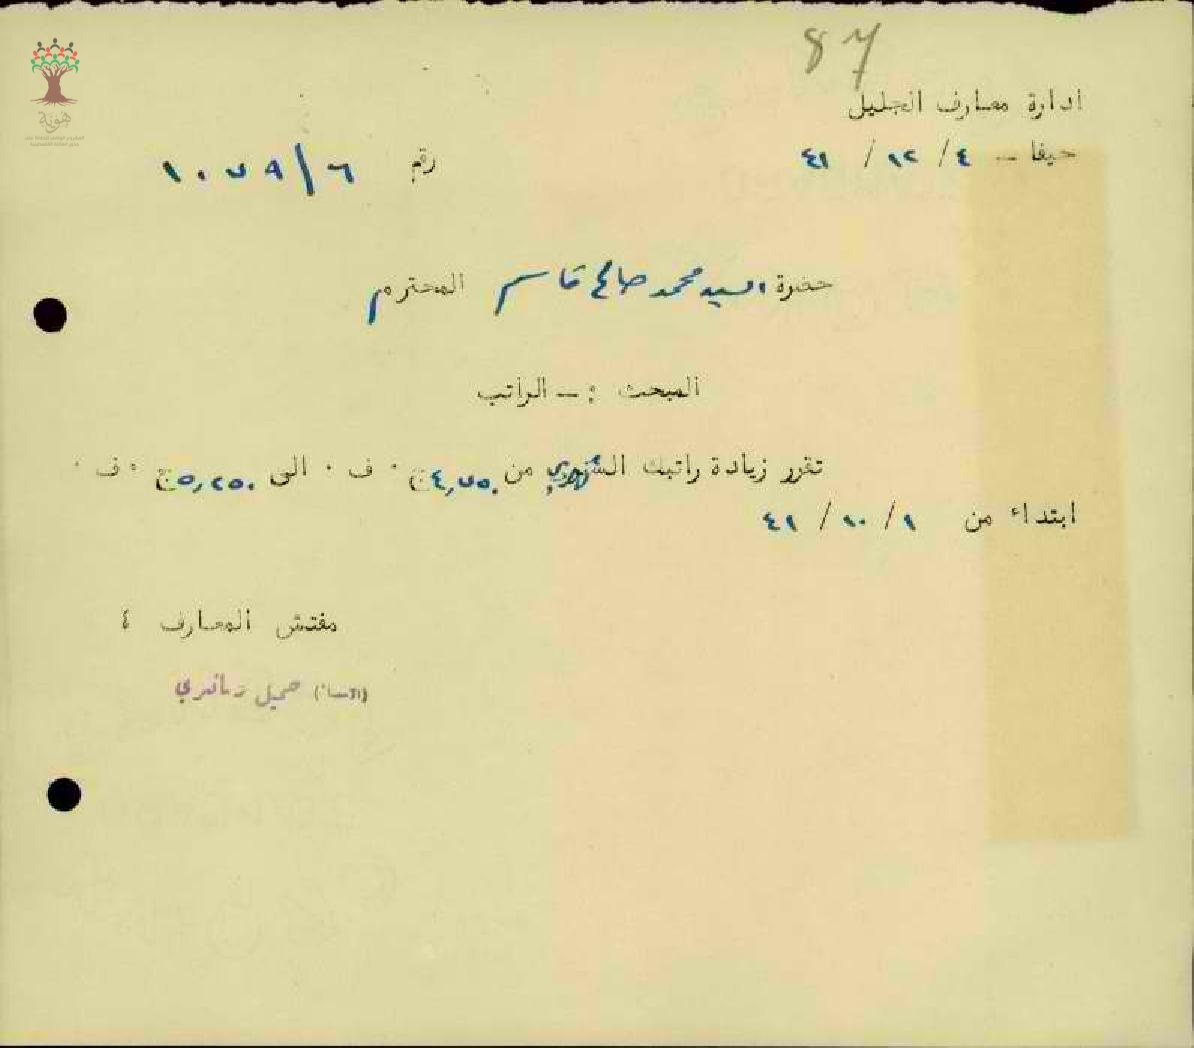 87
هوية
ادارة معارف الجليل
حيفا – ٤ / ١٢ / ٤١
رقم ٦/١٠٧٩
حضرة السيد محمد صالح قاسم المحترم
المبحث : – الراتب
تقرر زيادة راتبك الشهري من ٤٫٧٥٠ ج ٠ ف ٠ الى ٥٫٢٥٠ ج ٠ ف ٠
ابتداء من ١ / ١٠ / ٤١
مفتش المعارف ٤
جميل